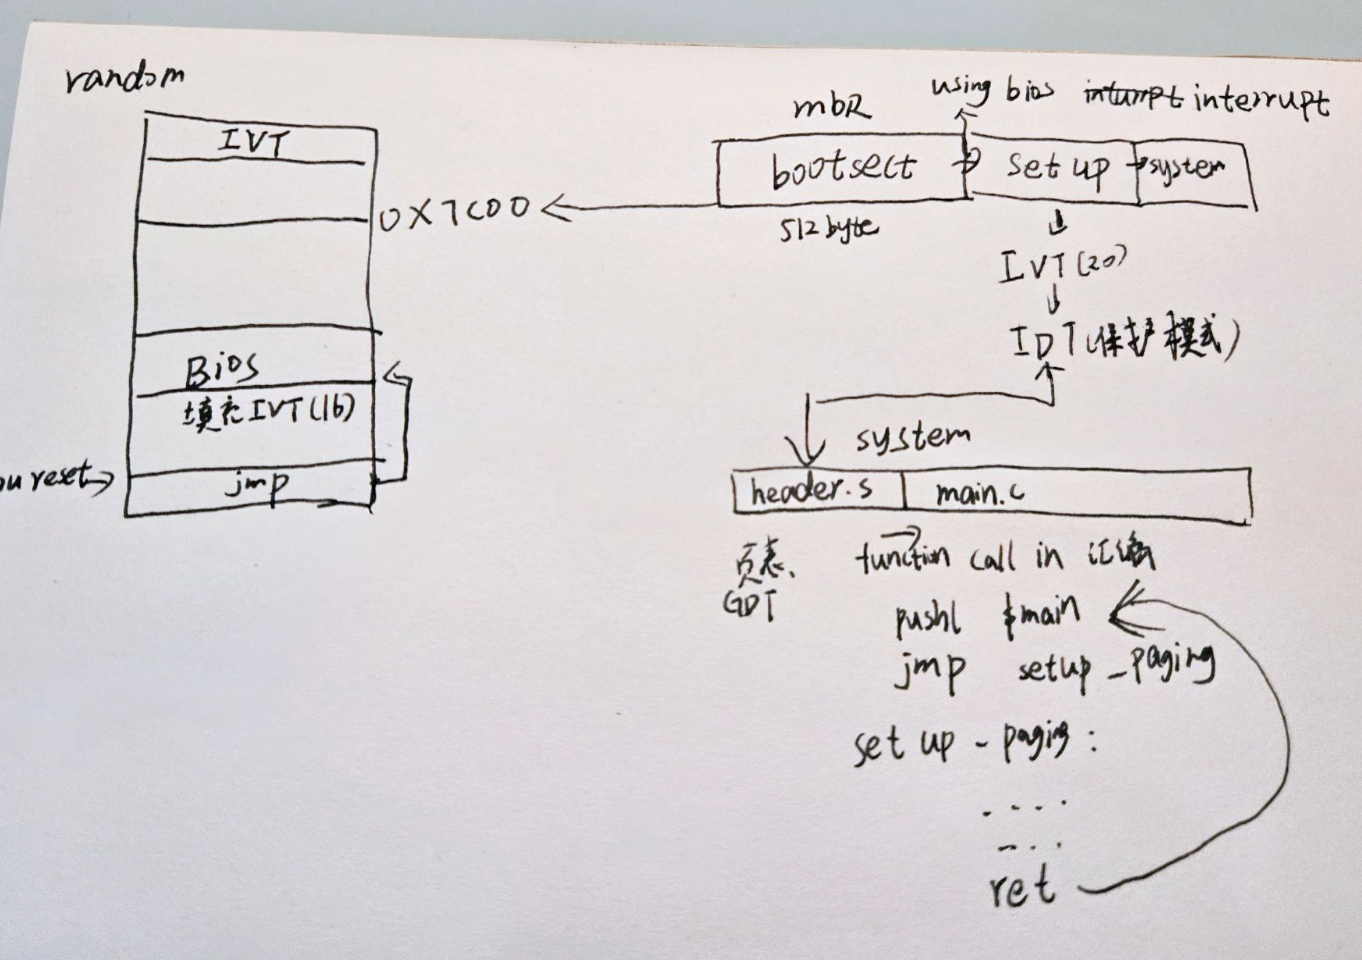 random
IVT
0X7C00
Bios
填充IVT(16)
reset
jmp
using bios interrupt
mbR
bootsect
set up
system
512 byte
IVT(20)
IDT(保护模式)
system
header.s
main.c
页表、
GDT
function call in 汇编
pushl $main
jmp setup_paging
set up - paging :
. . . .
- . . .
ret